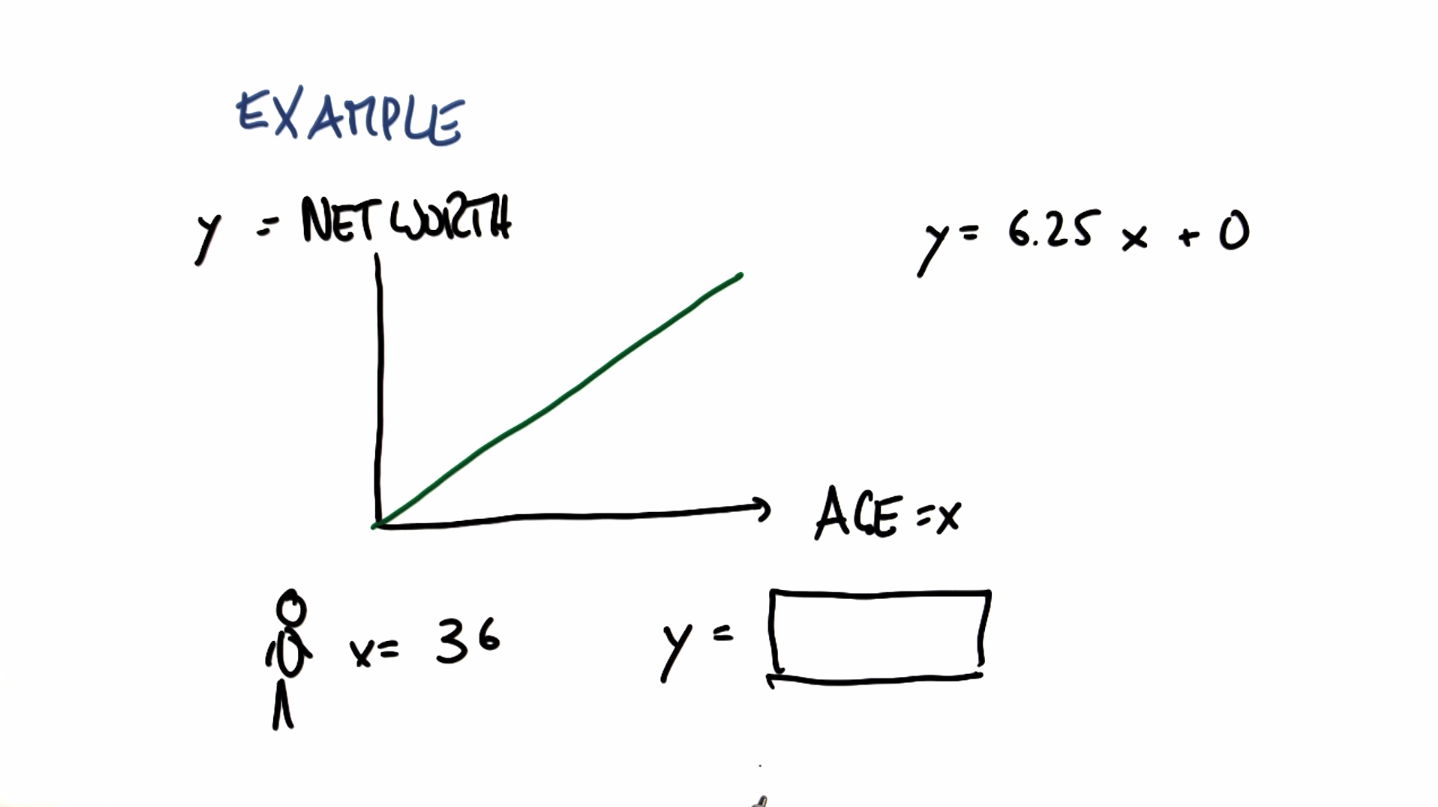 EXAMPLE
y = NET WORTH
y = 6.25 x + 0
AGE = x
x = 36
y =